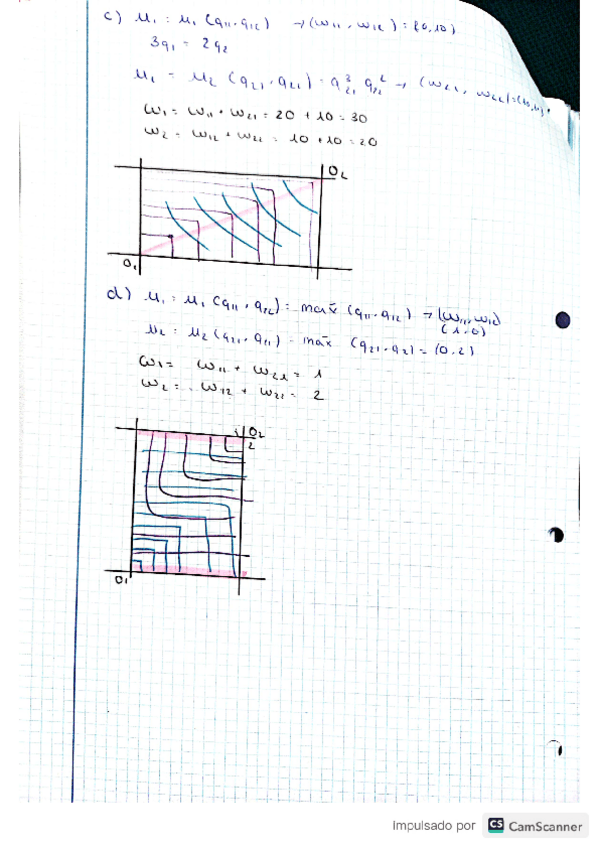 c) u₁ : u₁ (q₁₁, q₁₂) → (w₁₁, w₁₂) : (20,10)
3q₁ = 2q₂
u₁ = u₂ (q₂₁, q₂₂) = q₂₁³ q₂₂² → (w₂₁, w₂₂) = (10,10).
w₁ = w₁₁ + w₂₁ = 20 + 10 = 30
w₂ = w₁₂ + w₂₂ = 10 + 10 = 20
O₂
O₁
d) u₁ : u₁ (q₁₁, q₁₂) : max (q₁₁, q₁₂) → (w₁₁, w₁₂)
(1,0)
u₂ : u₂ (q₂₁, q₁₁) = max (q₂₁, q₂) = (0,2)
w₁ = w₁₁ + w₂₁ = 1
w₂ = w₁₂ + w₂₂ = 2
O₂
2
O₁
Impulsado por CS CamScanner